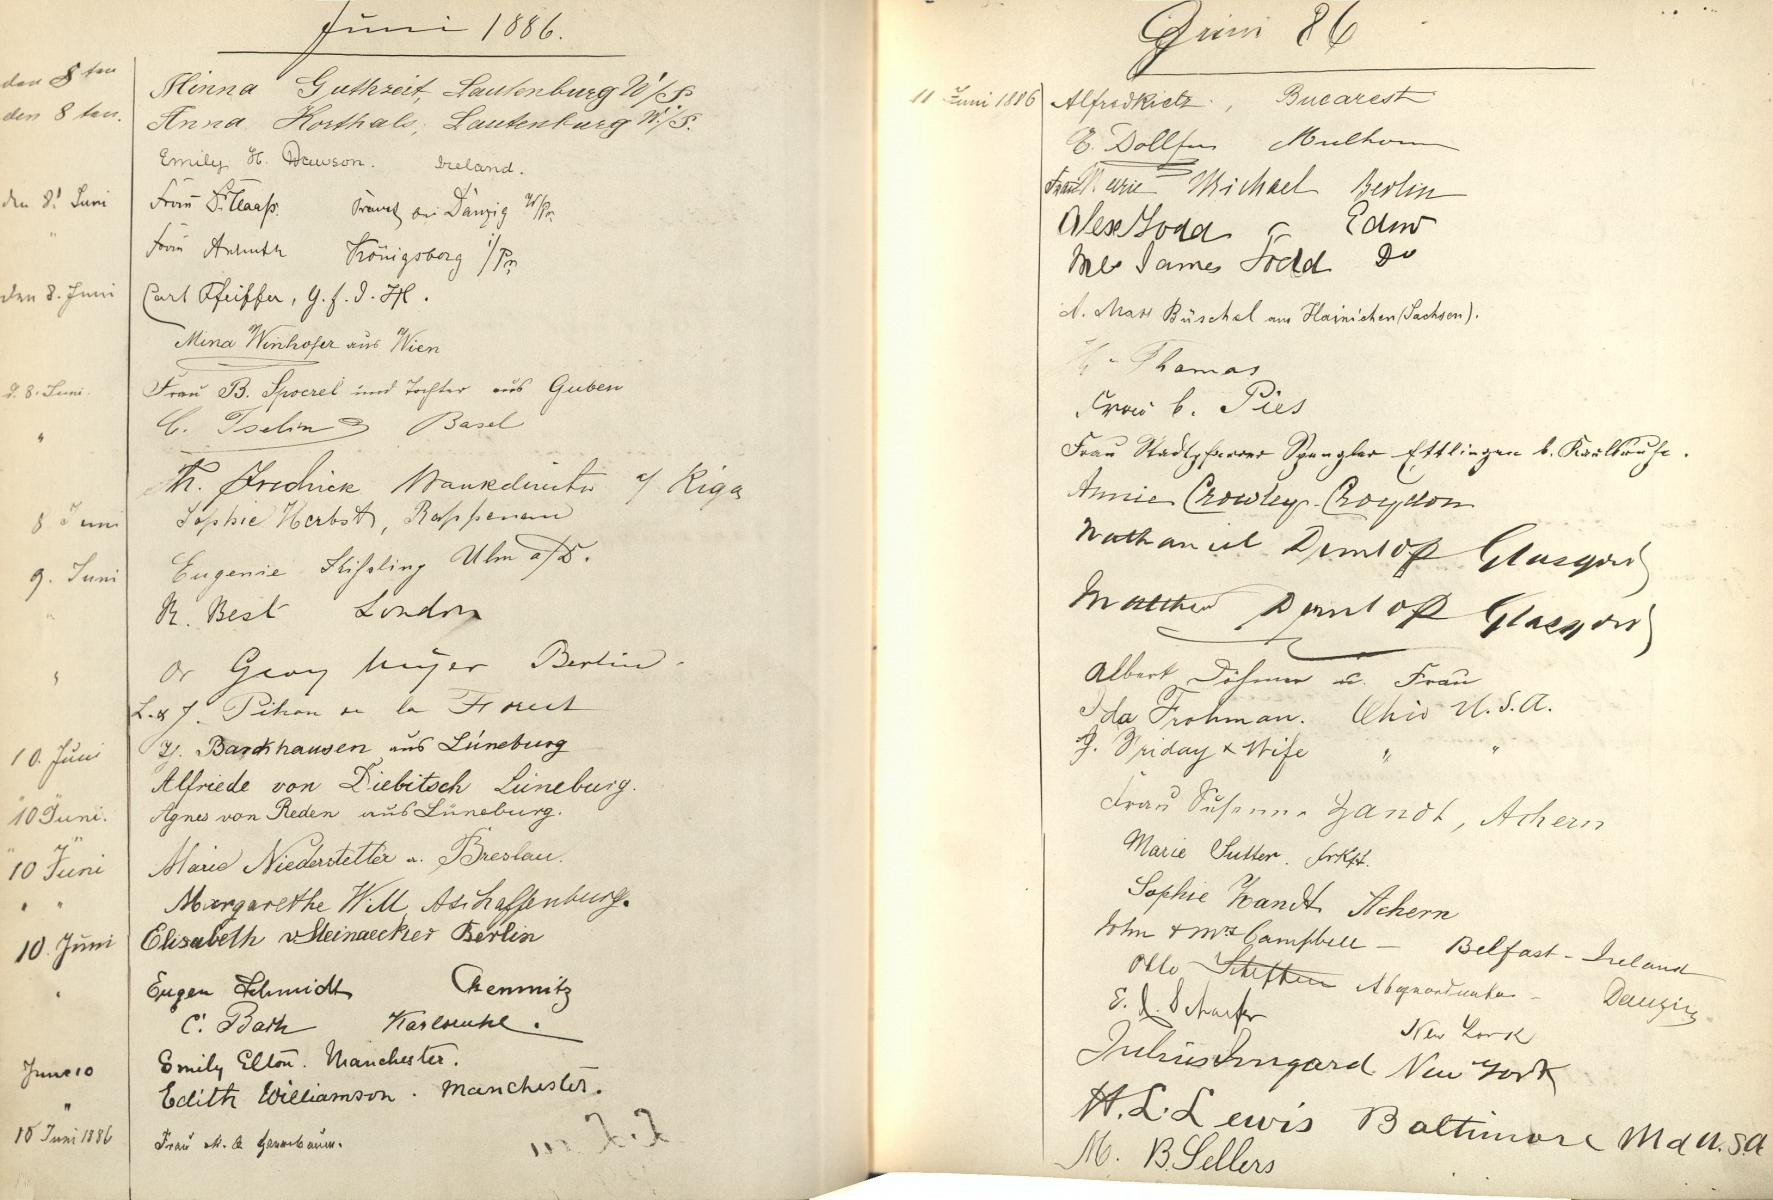 Juni 1886.
den 8ten Minna Guthzeit, Lautenburg W/P.
den 8ten. Anna Korthals, Lautenburg W./P.
Emily H. Dawson. Ireland.
den 8t Juni Frau Danzig W/Pr.
" Frau Königsberg i/Pr.
den 8. Juni Carl Pfeiffer, G. f. d. H.
Mina Winhofer aus Wien
d. 8. Juni. Frau B. Spoerel und Tochter aus Guben
" C. Iselin Basel
Th. Fredrick Bankdirector a/ Riga
8 Juni Sophie Herbst, Rappenau
9. Juni Eugenie Kißling Ulm a/D.
" R. Best London
" Dr Georg Meyer Berlin.
L. & J. Pihan de la Forest
10. Juni H. Barkhausen aus Lüneburg
Alfriede von Diebitsch Lüneburg.
10 Juni. Agnes von Reden aus Lüneburg.
10 Juni Marie Niederstetter a. Breslau.
" " Margarethe Will Aschaffenburg.
10. Juni Elisabeth v Steinaecker Berlin
" Eugen Schmidt Chemnitz
C. Bath Karlsruhe.
June 10 Emily Elton. Manchester.
" Edith Williamson. Manchester.
10 Juni 1886 Frau
Juni 86
11 Juni 1886 Alfred Kietz, Bucarest
E. Dollfus Mulhouse
Frau Marie Michael Berlin
Alex Todd Edinr
Mrs James Todd Do
A. Max Büschel aus Hainichen (Sachsen).
Thomas
Frau C. Pies
Frau Stadtpfarrer Spengler Ettlingen b. Karlsruhe.
Annie Crowley. Croydon
Nathaniel Dunlop Glasgow
Matthew Dunlop Glasgow
Albert Döhmer u. Frau
Ida Frohman. Ohio U.S.A.
J. Friday & Wife " "
Frau Susanna Zandt, Achern
Marie Sutter. Frkft.
Sophie Zandt Achern
John & Mrs Campbell - Belfast - Ireland
Otto Steffens Abgeordneter - Danzig
E. J. Schaefer New York
Julius Imgard New York
H. L. Lewis Baltimore Md U.S.A
M. B. Sellers